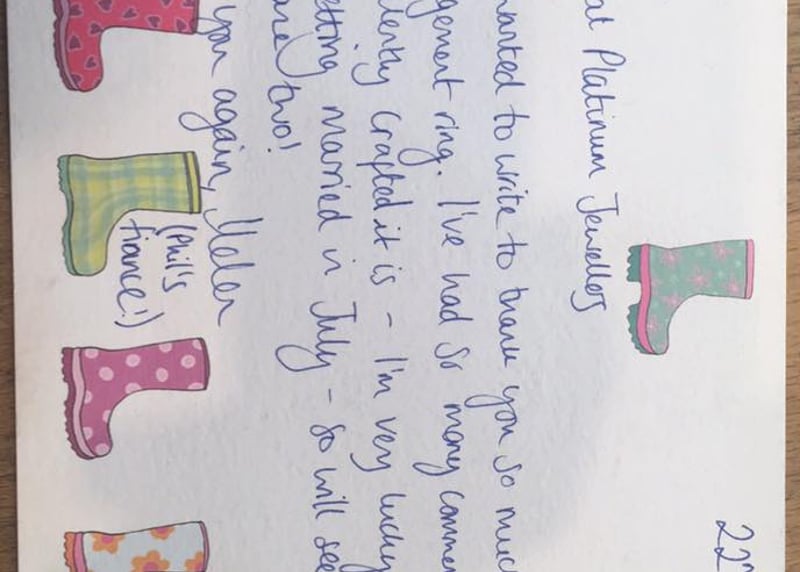 22
at Platinum Jewellers
anted to write to thank you so muc
gement ring. I've had so many comme
lently crafted it is - I'm very lucky
etting married in July - So will see
two!
you again, Helen
(Phil's
fiance!)